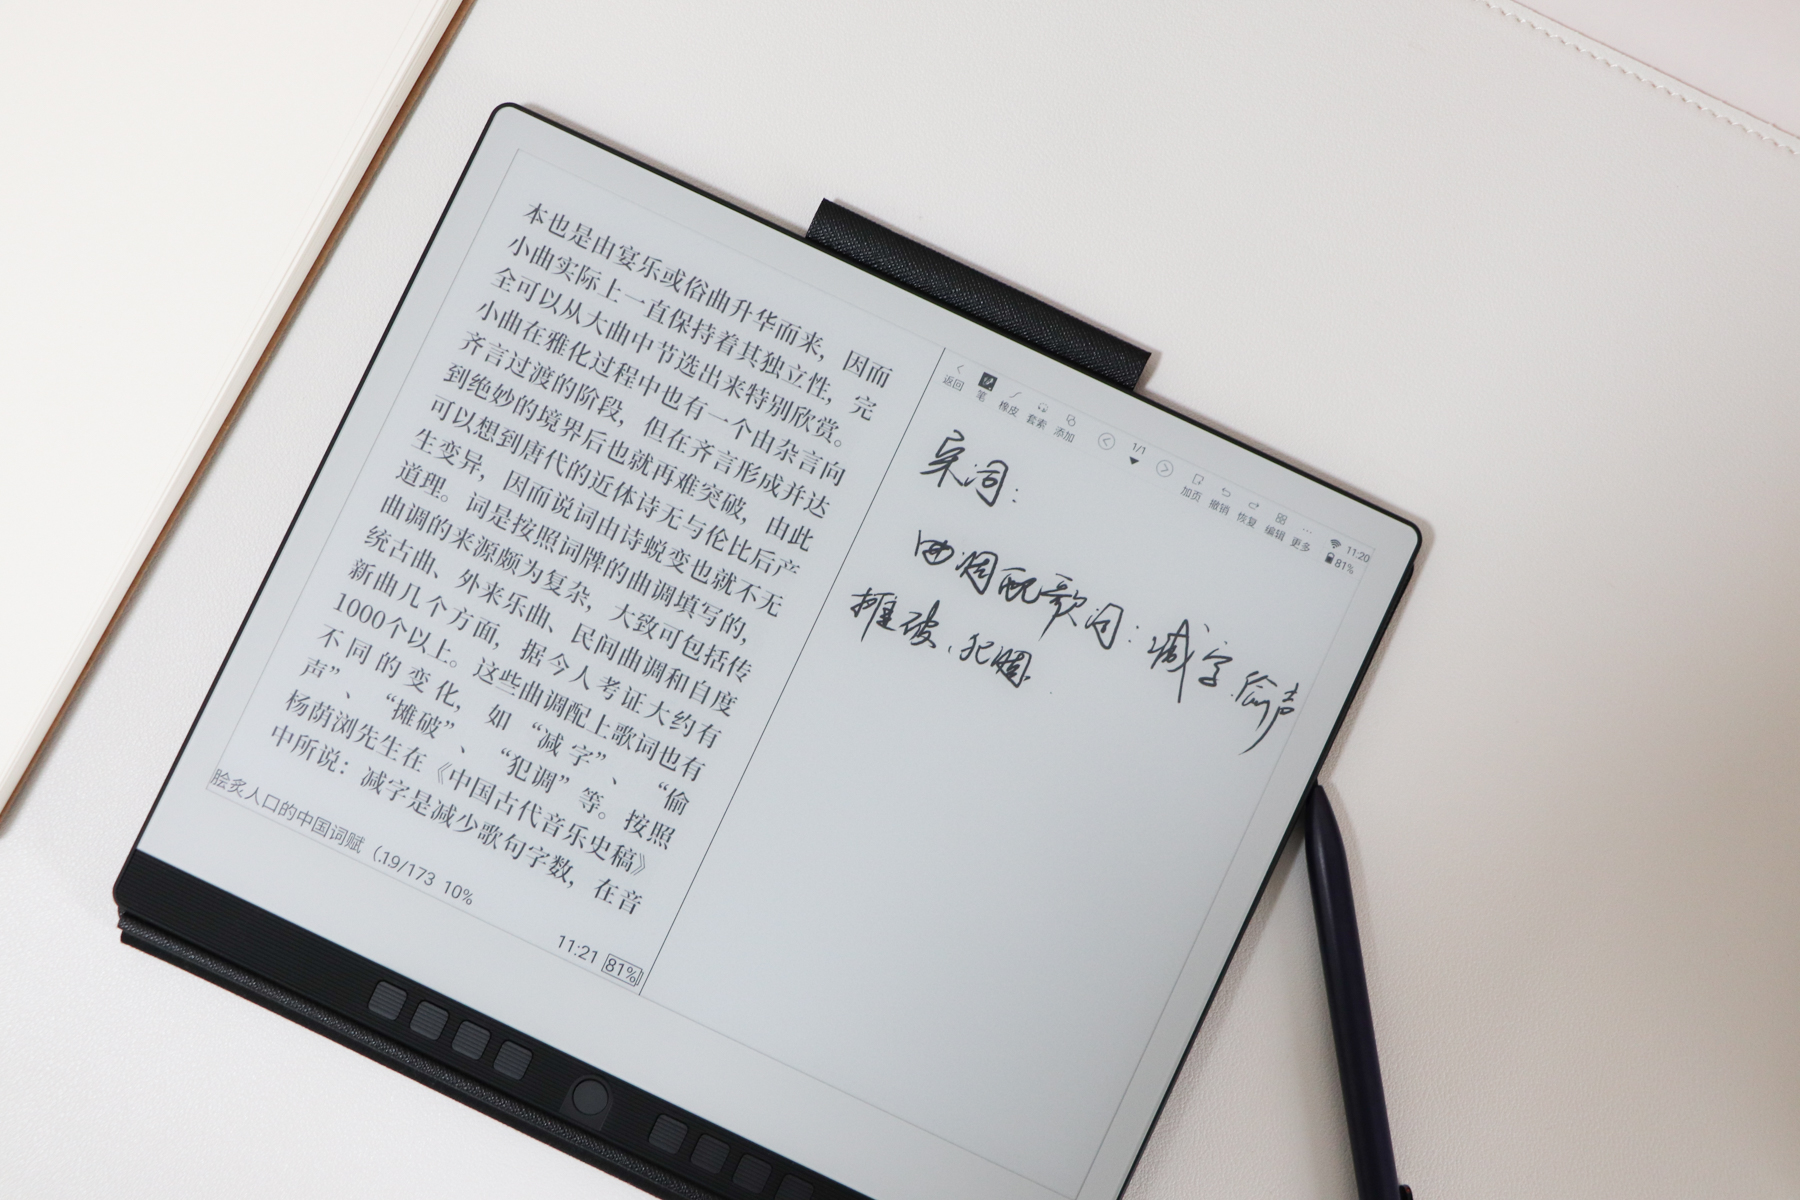 本也是由宴乐或俗曲升华而来，因而
小曲实际上一直保持着其独立性，完
全可以从大曲中节选出来特别欣赏。
小曲在雅化过程中也有一个由杂言向
齐言过渡的阶段，但在齐言形成并达
到绝妙的境界后也就再难突破，由此
可以想到唐代的近体诗无与伦比后产
生变异，因而说词由诗蜕变也就不无
道理。词是按照词牌的曲调填写的，
曲调的来源颇为复杂，大致可包括传
统古曲、外来乐曲、民间曲调和自度
新曲几个方面，据今人考证大约有
1000个以上。这些曲调配上歌词也有
不同的变化，如“减字”、“偷
声”、“摊破”、“犯调”等。按照
杨荫浏先生在《中国古代音乐史稿》
中所说：减字是减少歌句字数，在音
脍炙人口的中国词赋（.19/173 10%
11:21 81%
返回 笔 橡皮 套索 添加 1/1 加页 撤销 恢复 编辑 更多 11:20 81%
宋词：
曲调配歌词：减字、偷声
摊破、犯调